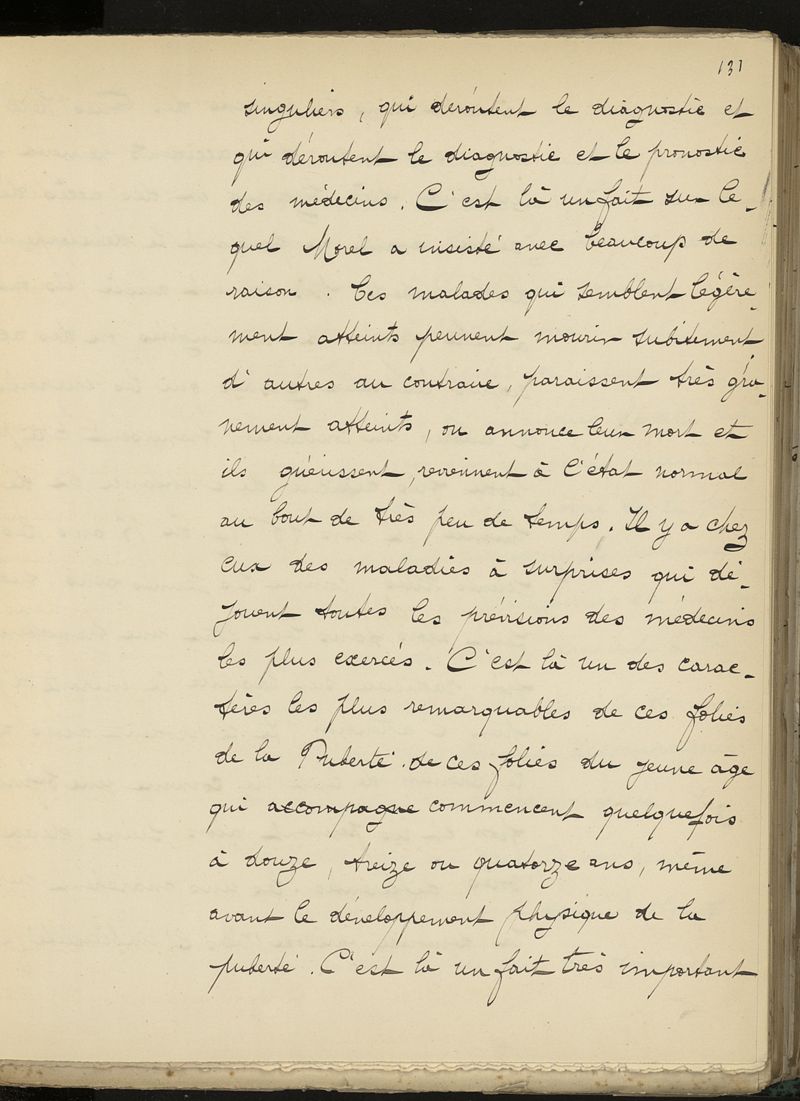 131
singuliers, qui déroutent le diagnostic et
qui déroutent le diagnostic et le pronostic
des médecins. C'est là un fait sur le-
quel Morel a insisté avec beaucoup de
raison. Ces malades qui semblent légère-
ment atteints peuvent mourir subitement,
d'autres au contraire, paraissent très gra-
vement atteints, on annonce leur mort et
ils guérissent, reviennent à l'état normal
au bout de très peu de temps. Il y a chez
eux des maladies à surprises qui dé-
jouent toutes les prévisions des médecins
les plus exercés. C'est là un des carac-
tères les plus remarquables de ces folies
de la Puberté. de ces folies du jeune âge
qui accompagne commencent quelquefois
à douze, treize ou quatorze ans, même
avant le développement physique de la
puberté. C'est là un fait très important